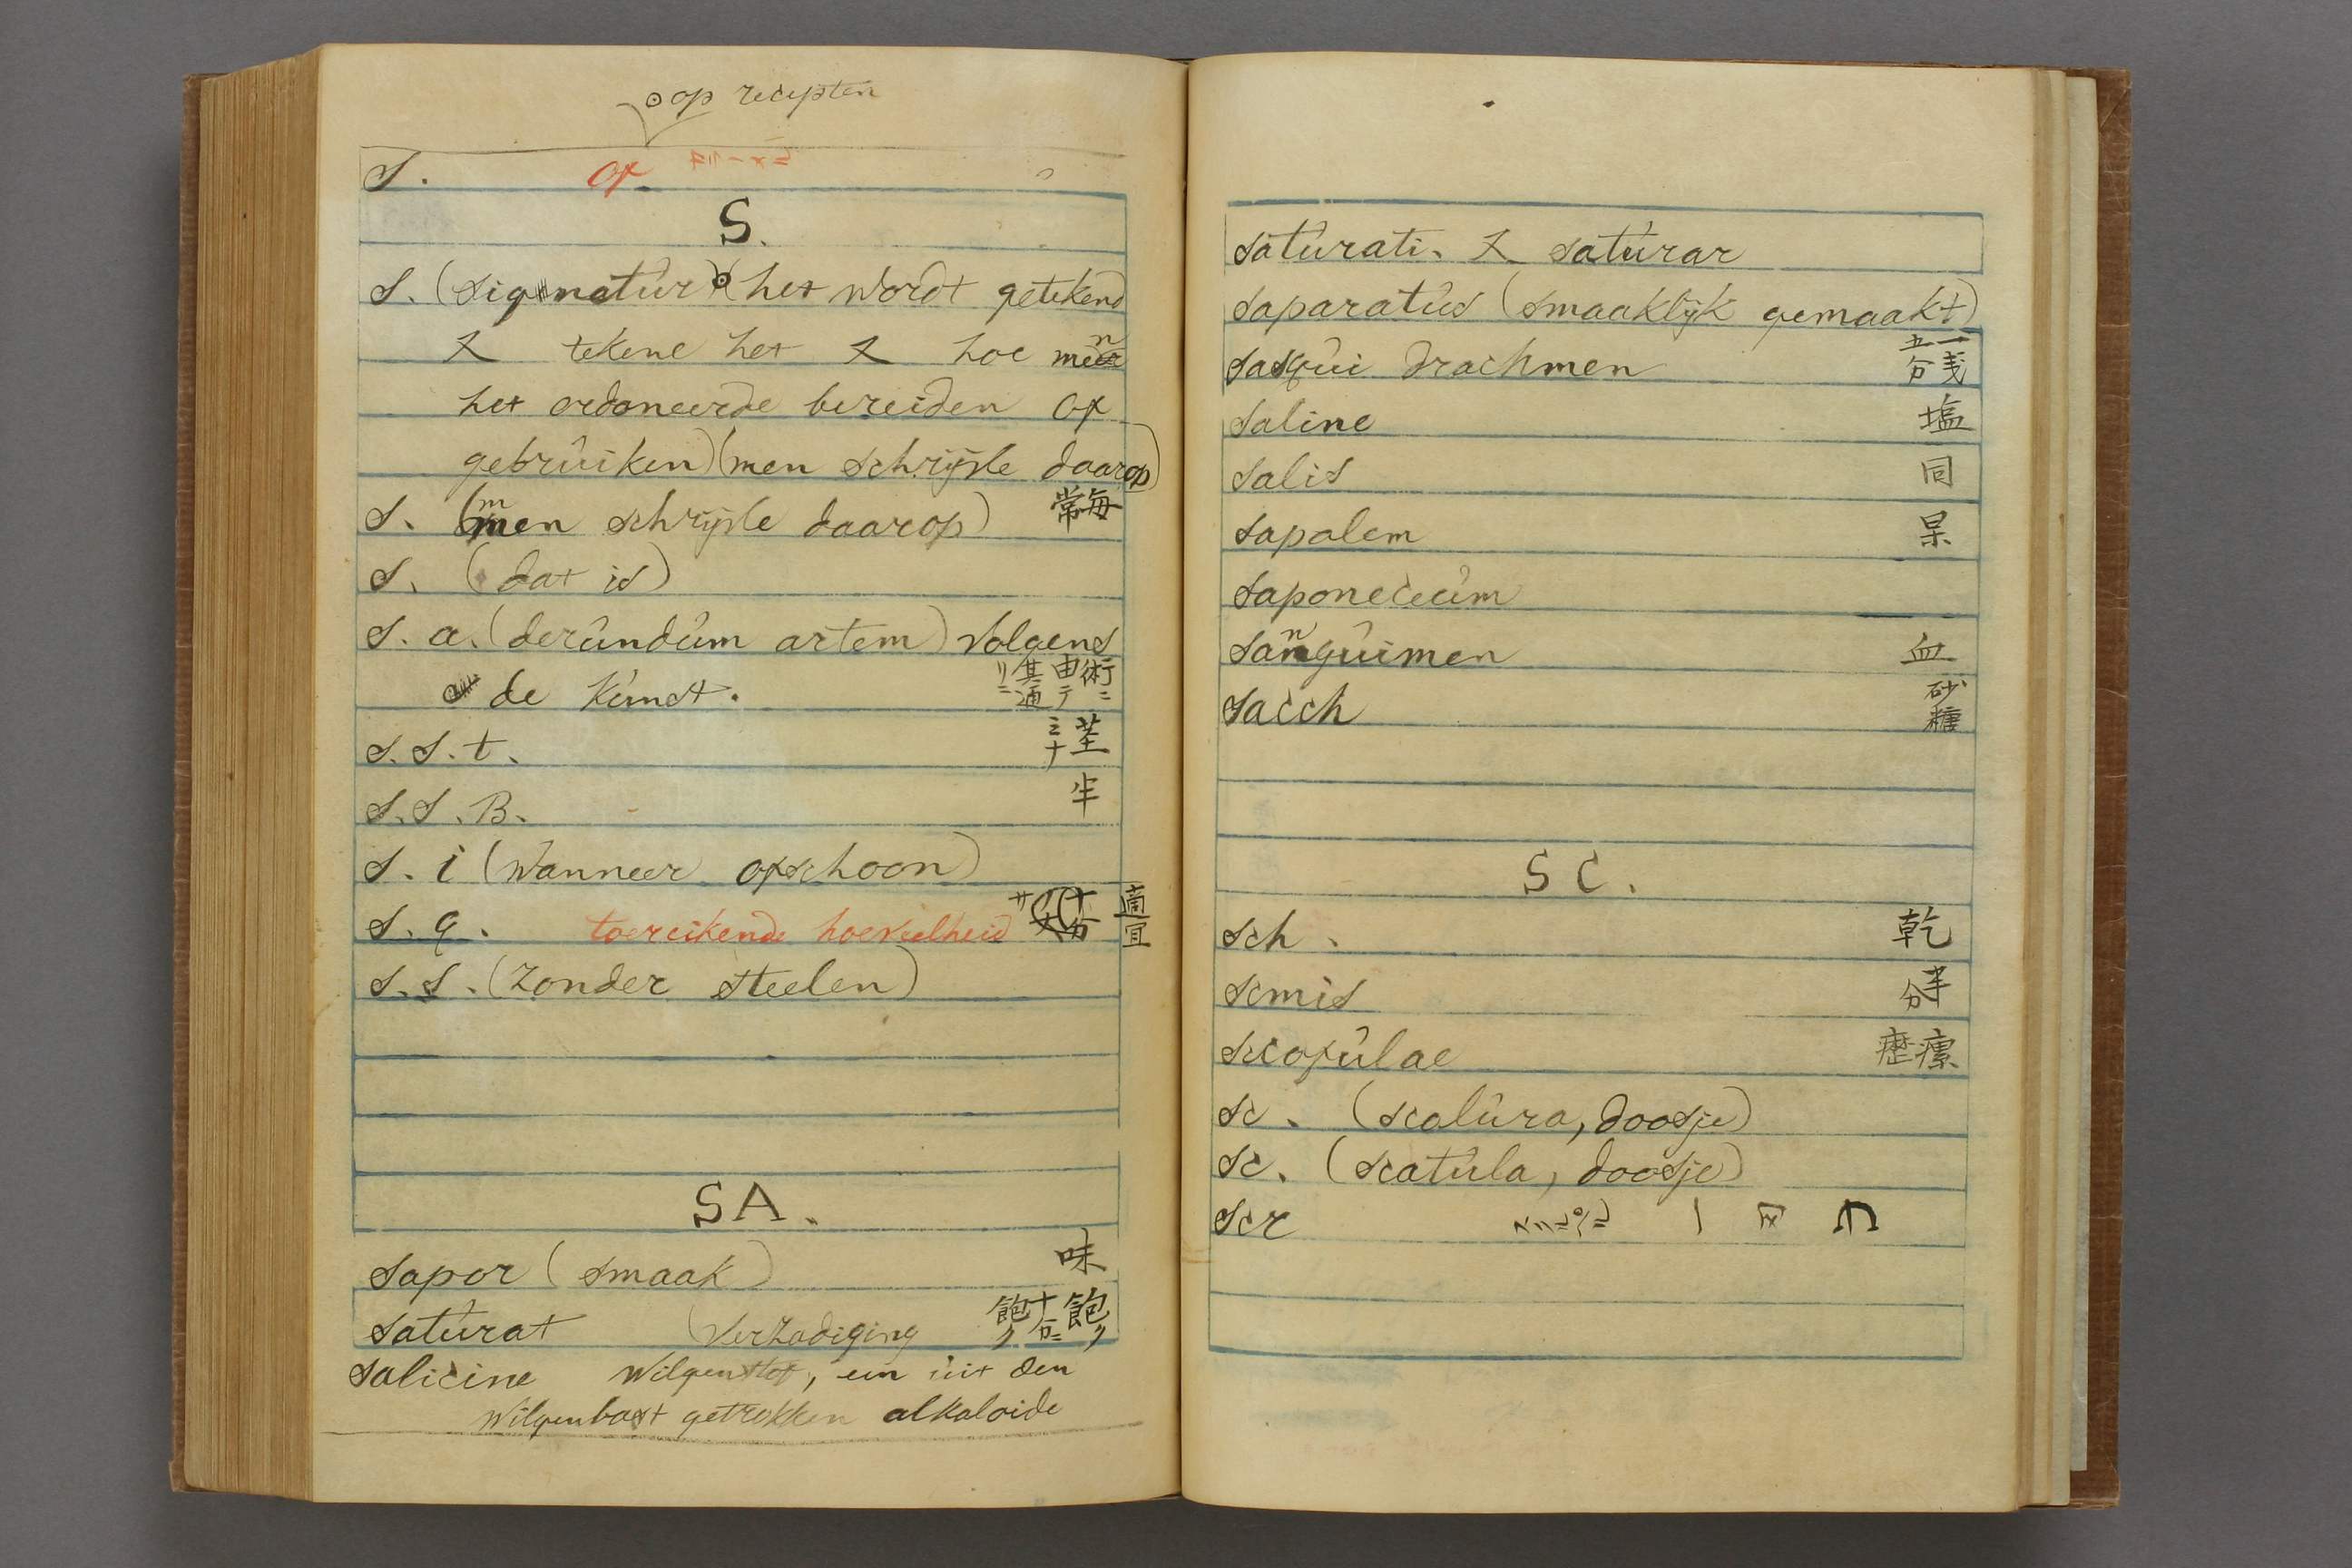 op recepten
S. of
S.
S. (signatur) (het wordt getekend
tekene het hoe men
het ordoneerde bereiden of
gebrûiken) (men schrijvle daarop)
S. (men schrijvle daarop) 毎常
S. (dat is)
S. a. (derûndûm artem) volgens
de Kûnst. 術ニ由テ其通リニ
S. S. t. 茎ナ
S. S. B. 半
S. i (wanneer ofschoon)
S. q. toereikende hoeveelheid 十分 適宜
S. S. (zonder steelen)
SA.
Sapor (smaak) 味
Satûrat (verzadiging 飽ク十分ニ飽ク
Salicine Wilgenstof, een ûit den
Wilgenbast getrokken alkaloide
Satûrati. satûrar
Saparatûs (smaaklijk gemaakt)
Sasqûi drachmen 一戔五分
Saline 塩
Salis 同
Sapalem 杲
Saponeceûm
Sangûimen 血
Sacch 砂糖
SC.
Sch. 乾
Scmis 半分
Sccofûlae 瘰癧
Sc. (scalûra, doosje)
Sc. (scatûla, doosje)
Scr